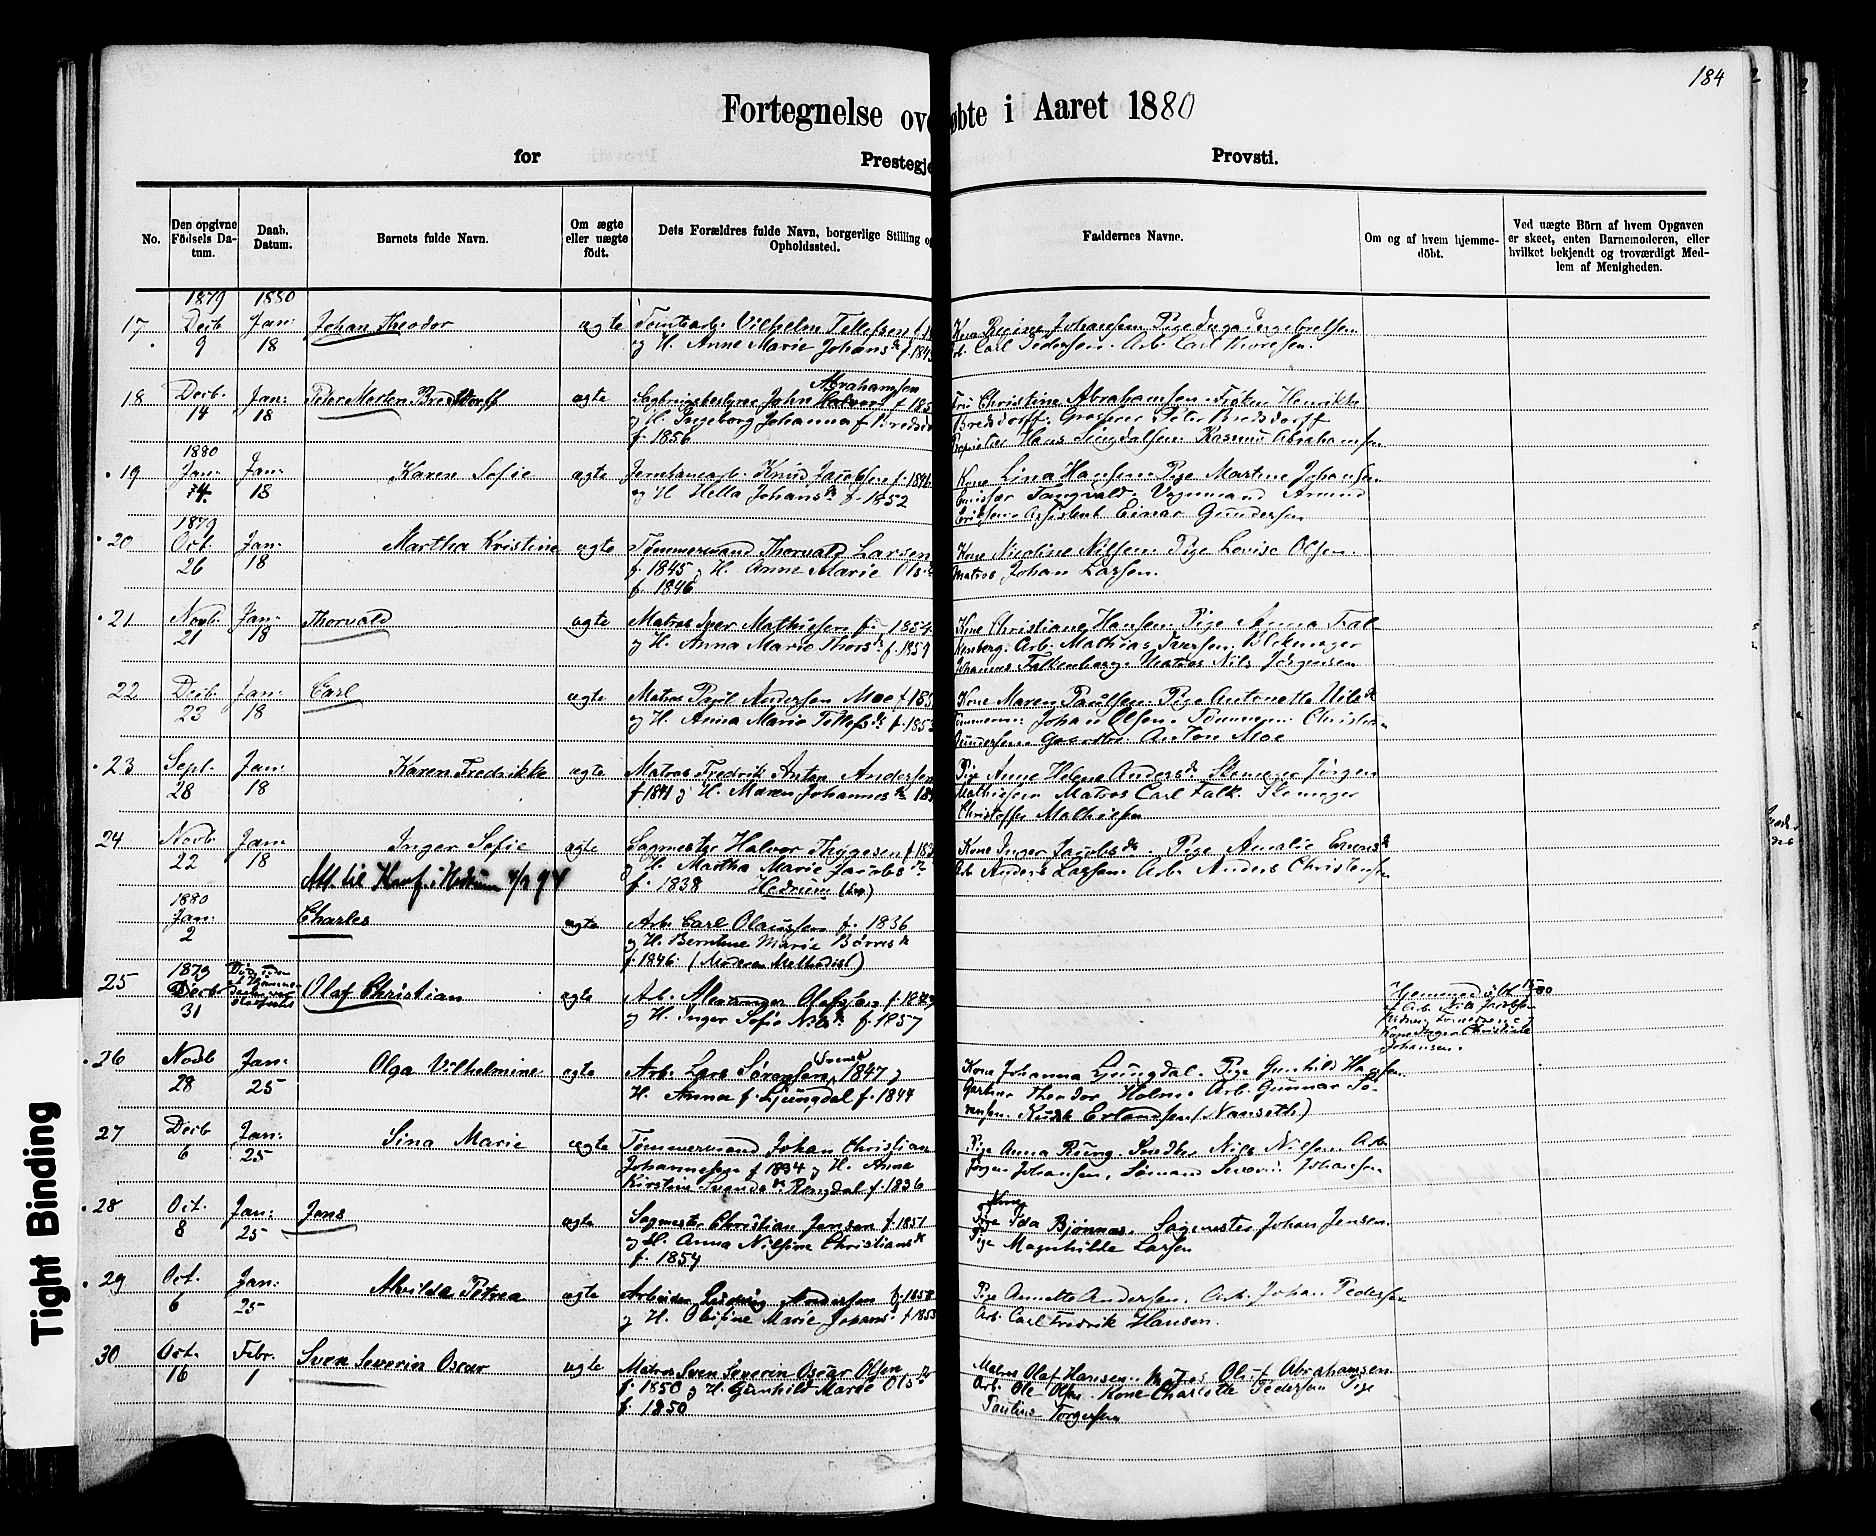 184
Fortegnelse ov øbte i Aaret 1880
for Prestegje Provsti.
No.
Den opgivne Födsels Datum.
Daab. Datum.
Barnets fulde Navn.
Om ægte eller uægte födt.
Dets Forældres fulde Navn, borgerlige Stilling og Opholdssted.
Faddernes Navne.
Om og af hvem hjemmedöbt.
Ved uægte Börn af hvem Opgaven er skeet, enten Barnemoderen, eller hvilket bekjendt og troværdigt Medlem af Menigheden.
1879 1880
17. Decb. 9 Jan: 18 Johan Theodor ægte Vilhelm Tellefsen
og H. Anne Marie Johansd.
Kone Regine Johansen Pige Inga
Arb. Carl Pedersen. Arb. Carl
18 Decb. 14 Jan: 18 Peter Melten Bredsdorff ægte Abrahamsen
Sagbrugsbestyrer John
og H. Ingeborg Johanna f. Bredsd
f. 1856
Fru Christine Abrahamsen. Frøken Henrikke
Bredsdorff. Grosserer Peter Bredsdorff
Hans Abrahamsen
1880
19 Jan: 4. Jan: 18 Karen Sofie ægte Knud Jacobsen
og H. Hella Johansd. f. 1852
Kone Lina Hansen. Pige Martine Johansen
Tangvald. Vognmand
Eriksen. Assistent Einar Gundersen
1879
20 Oct. 26 Jan: 18 Martha Kristine ægte Tømmermand Thorvald Larsen
f. 1845 og H. Anne Marie Ols
f. 1846
Kone Nicoline Nilsen. Pige Lovise Olsen.
Matros Johan Larsen.
21 Novb. 21 Jan: 18 Thorvald ægte Matros Iver Mathissen f. 1854
og H. Anna Marie Thorsd. f. 1859
Kone Christiane Hansen. Pige Anna Fal
kenberg. Arb. Mathias Iversen. Blikmager
Johannes Falkenberg. Matros Nils Jørgensen
22 Decb. 23 Jan: 18 Carl ægte Matros Paul Andersen Moe
og H. Anna Marie Tellefsd.
Kone Maren Paulsen. Pige Antonette Nilsd.
Tømmerm: Johan Olsen. Tømmerm: Christen
Gundersen. Anton Moe
23 Sept. 28 Jan: 18 Karen Fredrikke ægte Matros Fredrik Anton Andersen
f. 1841 og H. Maren Johannesd.
Pige Anne Helene Andersd. Skomager Jørgen
Mathisen Matros Carl Falk. Skomager
Christoffer Mathisen
24 Novb. 22 Jan: 18 Inger Sofie ægte Sagmester Halvor Thygesen
og H. Martha Marie Jacobsd.
f. 1838 Hedrum
Att. til Konf. i Hedrum 4/9 94
Kone Inger Jacobsd. Pige Amalie
Arb. Anders Larsen. Arb. Anders Christensen
1880
Jan: 2 Charles ægte Arb. Carl Olaussen f. 1836
og H. Berntine Marie
f. 1846 (Moderen Methodist)
1879
25 Decb. 31 Olaf Christian ægte Arb. Alexander Olafsen
og H. Inger Sofie Nilsd. f. 1857
Arb. Nils Jacobsen
Kone Inger Christiane
Johansen.
26 Novb 28 Jan: 25 Olga Vilhelmine ægte Arb. Lars Sørensen, 1847 og
Svensk
H. Anna f. Ljungdal f. 1844
Kone Johanna Ljungdal. Pige Gunhild Hansen.
Gartner Theodor Holm. Arb. Gunnar Sø
rensen. Erlandsen (Nanseth)
27 Decb 6 Jan: 25 Sina Marie ægte Tømmermand Johan Christian
Johannesen f 1834 og H. Anna
Kirstine Svendsd. Rongdal f. 1836
Pige Anna Rung. Nils Nilsen Arb.
Jørgen Johansen. Sømand Severin Johansen
28 Oct. 8 Jan: 25 Jens ægte Sagmester Christian Jensen f. 1851
og H. Anna Nilsine Christiansd.
f. 1854
Kone
Pige Ida Bjønnes. Sagmester Johan Jensen.
Pige Magnhilde Larsen
29 Oct. 6 Jan: 25 Alvilda Petrea ægte Arbeider Ludvig Andersen f. 1858
og H. Marie Johans f. 1853
Pige Annette Andersen. Arb. Johan Pedersen
Arb. Carl Fredrik Hansen.
30 Oct. 16 Febr. 1 Sven Severin Oscar ægte Matros Sven Severin Oscar Olsen
f. 1850 og H. Gunhild Marie Olsd.
f. 1850
Matros Olaf Hansen. Matros Oluf Abrahamsen
Arb. Ole Olsen. Kone Charlotte Pedersen Pige
Pauline Torgersen
Tight Binding